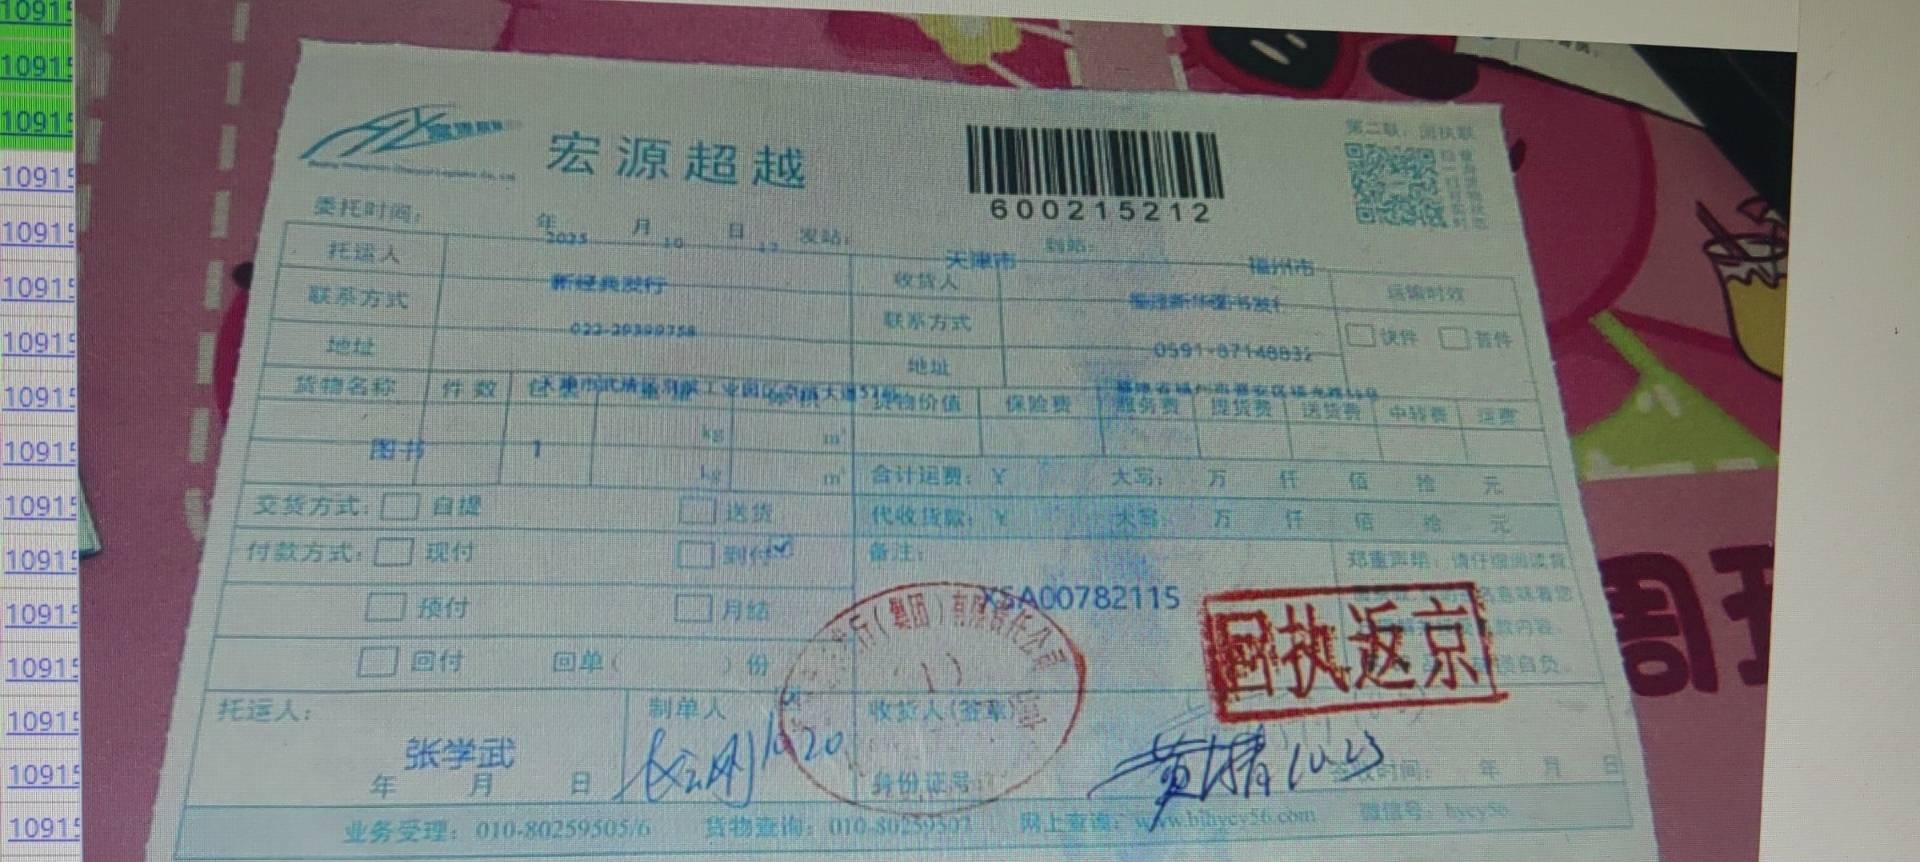 10915
10915
10915
10915
10915
10915
10915
10915
10915
10915
10915
10915
10915
10915
10915
10915
宏源超越
600215212
第二联：回执联
委托时间： 年 月 日 发站： 到站：
2025 10 17 天津市 福州市
托运人 新经典发行 收货人 福建新华图书发行 运输时效
联系方式 联系方式 0591-87148832 快件 普件
地址 地址
货物名称 件数 货物价值 保险费 服务费 提货费 送货费 中转费 运费
kg m³
图书 1
kg m³
合计运费：￥ 大写： 万 仟 佰 拾 元
交货方式： 自提 送货 代收货款：￥ 大写： 万 仟 佰 拾 元
付款方式： 现付 到付 备注： 郑重声明：请仔细阅读背
XSA00782115
预付 月结
回执返京
回付 回单（ ）份
（集团）有限责任公司
(1)
托运人： 制单人 收货人(签章)
张学武 10.20 10.23
年 月 日 身份证号： 时间： 年 月 日
业务受理：010-80259505/6 货物查询：010-80259507 网上查询：www.bjhycy56.com 微信号：hycy56
周